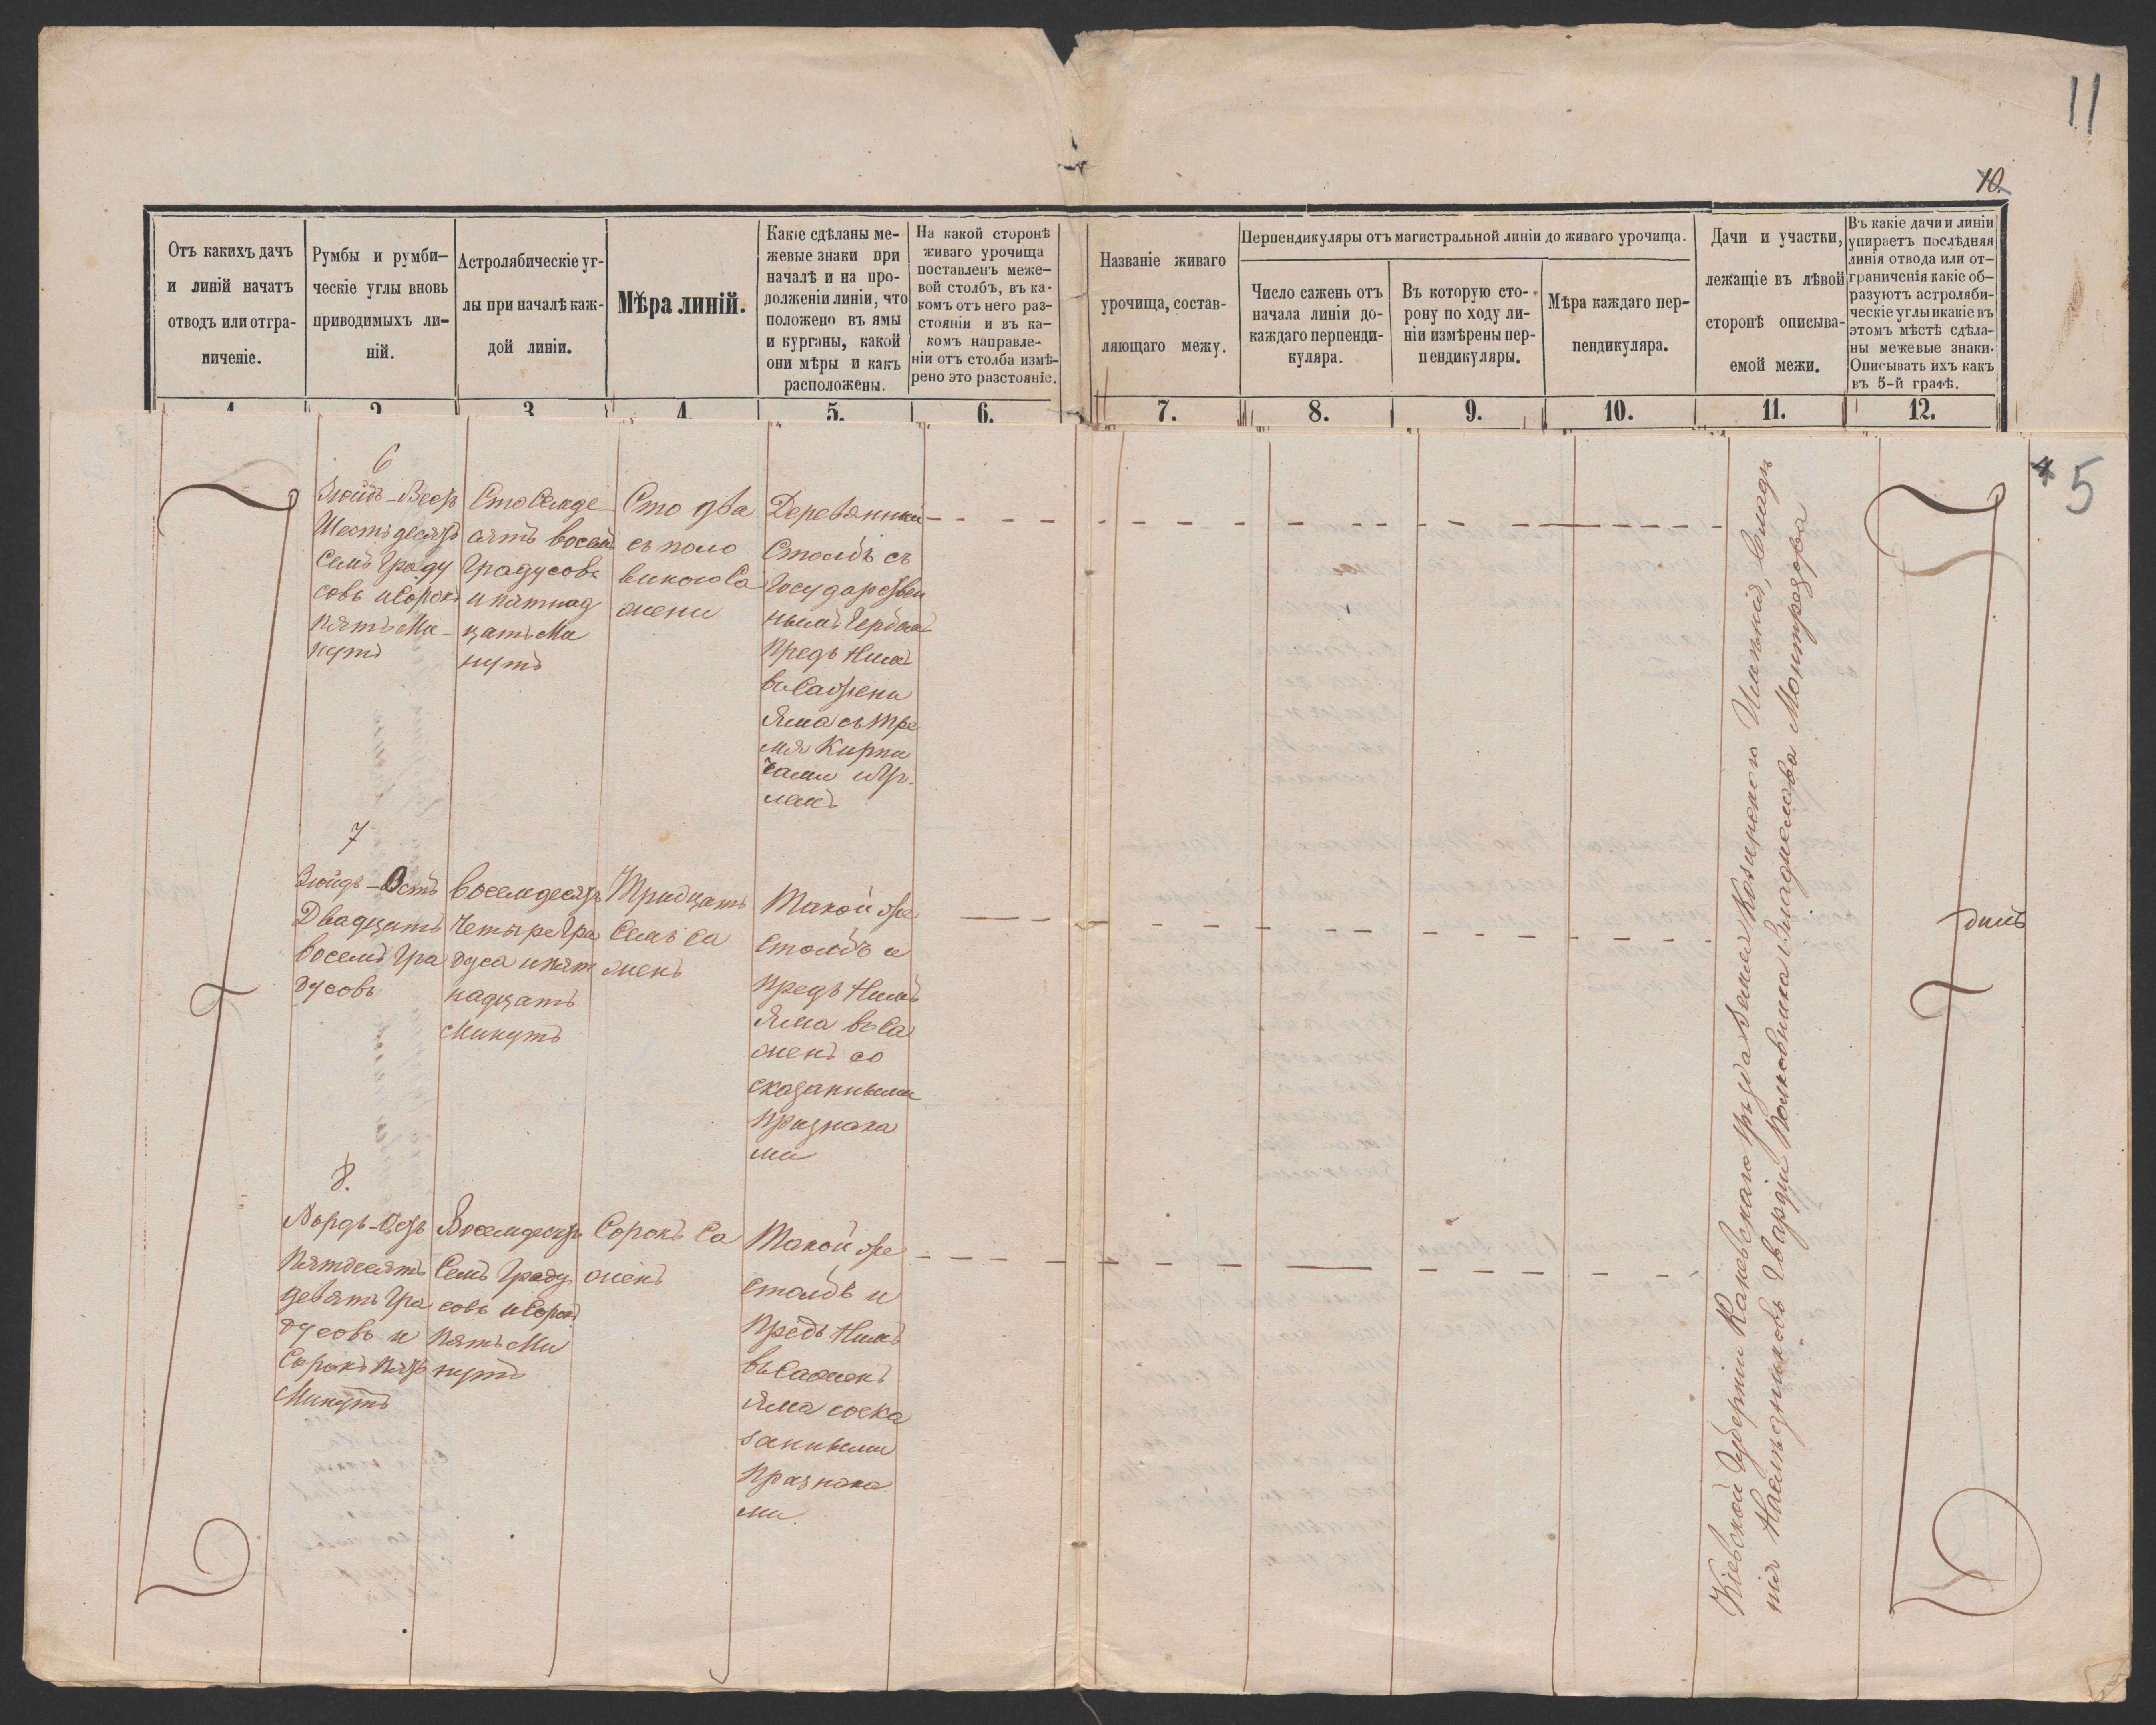 11
10.
Отъ какихъ дачъ
и линій начатъ
отводъ или отгра-
ниченіе.
Румбы и румби-
ческіе углы вновь
приводимыхъ ли-
ній.
Астролябическіе уг-
лы при началѣ каж-
дой линіи.
Мѣра линій.
Какіе сдѣланы ме-
жевые знаки при
началѣ и на про-
долженіи линіи, что
положено въ ямы
и курганы, какой
они мѣры и какъ
расположены.
На какой сторонѣ
живаго урочища
поставленъ меже-
вой столбъ, въ ка-
комъ отъ него раз-
стояніи и въ ка-
комъ направле-
ніи отъ столба измѣ-
рено это разстояніе.
Названіе живаго
урочища, состав-
ляющаго межу.
Перпендикуляры отъ магистральной линіи до живаго урочища.
Число сажень отъ
начала линіи до-
каждаго перпенди-
куляра.
Въ которую сто-
рону по ходу ли-
ніи измѣрены пер-
пендикуляры.
Мѣра каждаго пер-
пендикуляра.
Дачи и участки,
лежащіе въ лѣвой
сторонѣ описыва-
емой межи.
Въ какіе дачи и линіи
упираетъ послѣдняя
линія отвода или от-
граниченія какіе об-
разуютъ астроляби-
ческіе углы и какіе въ
этомъ мѣстѣ сдѣла-
ны межевые знаки.
Описывать ихъ какъ
въ 5-й графѣ.
1 2 3 4 5. 6. 7. 8. 9. 10. 11. 12.
4 5
6
Зюйдъ-Вестъ
Шестьдесятъ
Семь Граду
совъ и Сорокъ
пять Ми-
нутъ
Сто Семде-
сять восемь
Градусовъ
и пятнад
цать Ми
нутъ
Сто два
съ поло
виною Са
жени
Деревянный
Столбъ съ
Государствен
нымъ Гербомъ
Предъ Нимъ
въ Сажени
Яма съ тре
мя Кирпи
чами и Уг-
лемъ
7
Зюйдъ-Остъ
Двадцать
восемь Гра
дусовъ
восемдесятъ
Четыре Гра
дуса и пят
надцать
Минутъ
Тридцать
Семь Са
жень
Такой же
Столбъ и
предъ Нимъ
Яма въ Са
жень со
сказанными
признака
ми
8.
Нордъ-Остъ
Пятдесять
девять Гра
дусовъ и
Сорокъ пять
Минутъ
Восемдесятъ
Семь Граду
совъ и Сорокъ
пять Ми
нутъ
Сорокъ Са
жень
Такой же
столбъ и
предъ Нимъ
въ Сажень
Яма со ска
занными
признака
ми.
Кіевской Губерніи Каневскаго уѣзда Земля Козирского Имѣнія, Владѣ
нія Наслѣдниковъ Гвардіи Полковника Владислава Монтрезора
динъ